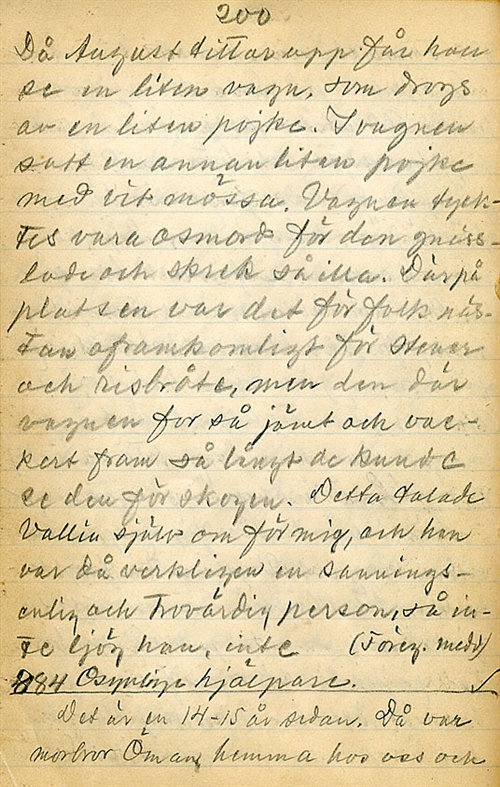 200
Då August tittar upp får han
se en liten vagn, som drogs
av en liten pojke. I vagnen
satt en annan liten pojke
med vit mössa. Vagnen tyck-
tes vara osmord för den gniss-
lade och skrek så illa. Där på
platsen var det för folk näs-
tan oframkomligt för stenar
och risbråte, men den där
vagnen for så jämt och vac-
kert fram så långt de kunde
se den för skogen. Detta talade
Vallin själv om för mig, och han
var då verkligen en sannings-
enlig och trovärdig person, så in-
te ljög han, inte (Föreg. medd)
884 Osynlige hjälpare.
Det är en 14-15 år sedan. Då var
morbror Öman hemma hos oss och